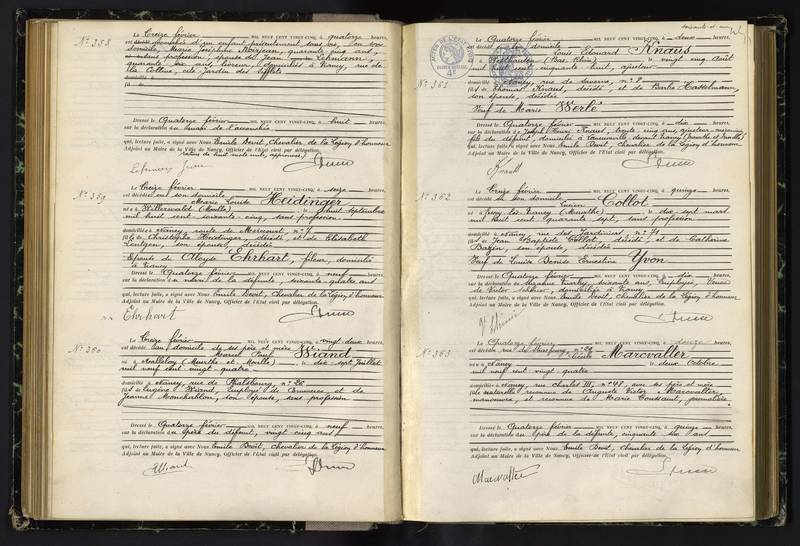 N° 358
Le Treize février MIL NEUF CENT VINGT-CINQ, à quatorze heures,
est accouchée d'un enfant présentement sans vie, en son
domicile, Marie Joséphine Noirjean, quarante cinq ans,
profession, épouse de Jean Lehmann,
quarante quatre ans, domiciliés à Nancy, rue de
la Colline, cité Jardin des
Dressé le Quatorze février MIL NEUF CENT VINGT-CINQ, à huit heures,
sur la déclaration
qui, lecture faite, a signé avec Nous Emile Devit, Chevalier de la Légion d'honneur
Adjoint au Maire de la Ville de Nancy, Officier de l'Etat civil par délégation.
N° 359
Le Treize février MIL NEUF CENT VINGT-CINQ, à seize heures,
est décédée en son domicile
Marie Louise Heidinger
née à Willerwald (Moselle) le huit septembre
mil huit cent soixante cinq, sans profession
domiciliée à Nancy, route de Mirecourt, n° 7
fille de Christophe Heidinger, décédé, et de Elisabeth
Lentzen, son épouse, décédée
Epouse de Aloyse Ehrhart, fileur, domicilié
à Nancy
Dressé le Quatorze février MIL NEUF CENT VINGT-CINQ, à neuf heures,
sur la déclaration du mari de la défunte, soixante quatre ans
qui, lecture faite, a signé avec Nous Emile Devit, Chevalier de la Légion d'honneur
Adjoint au Maire de la Ville de Nancy, Officier de l'Etat civil par délégation.
Ehrhart
N° 360
Le Treize février MIL NEUF CENT VINGT-CINQ, à vingt deux heures,
est décédé au domicile de ses père et mère
Marcel Paul Wiand
né à Malleloy (Meurthe-et-Moselle) le dix-sept Juillet
mil neuf cent vingt-quatre
domicilié à Nancy, rue de Phalsbourg, n° 26
fils de Eugène Wiand, employé de Commerce, et de
Jeanne Monchablon, son épouse, sans profession
Dressé le Quatorze février MIL NEUF CENT VINGT-CINQ, à neuf heures,
sur la déclaration du père du défunt, vingt-cinq ans
qui, lecture faite, a signé avec Nous Emile Devit, Chevalier de la Légion d'honneur
Adjoint au Maire de la Ville de Nancy, Officier de l'Etat civil par délégation.
EWiand
soixante et un
N° 361
Le Quatorze février MIL NEUF CENT VINGT-CINQ, à deux heures,
est décédé en son domicile
Louis Edouard Knaus
né à (Bas-Rhin) le vingt cinq août
mil huit cent cinquante-huit, ajusteur
domicilié à Nancy, rue de Saverne, n° 8
fils de Thomas Knaus, décédé, et de Barbe Hasselmann,
son épouse, décédée
Veuf de Marie Werlé
Dressé le Quatorze février MIL NEUF CENT VINGT-CINQ, à dix heures,
sur la déclaration de Joseph Henri Knaus, trente cinq ans, ajusteur-mécanicien
fils du défunt, domicilié à devant Nancy (Meurthe et Moselle)
qui, lecture faite, a signé avec Nous Emile Devit, Chevalier de la Légion d'honneur
Adjoint au Maire de la Ville de Nancy, Officier de l'Etat civil par délégation.
N° 362
Le Treize février MIL NEUF CENT VINGT-CINQ, à quinze heures,
est décédé en son domicile
Lucien Collot
né à lès-Nancy (Meurthe) le dix sept mars
mil huit cent quarante sept, sans profession
domicilié à Nancy, rue des Jardiniers, n° 71
fils de Jean Baptiste Collot, décédé, et de Catherine
Bazin, son épouse, décédée
Veuf de Louise Denise Ernestine Yvon
Dressé le Quatorze février MIL NEUF CENT VINGT-CINQ, à dix heures,
sur la déclaration de Suzanne soixante ans, employée, Veuve
de Victor domiciliée à Nancy
qui, lecture faite, a signé avec Nous Emile Devit, Chevalier de la Légion d'honneur
Adjoint au Maire de la Ville de Nancy, Officier de l'Etat civil par délégation.
N° 363
Le Quatorze février MIL NEUF CENT VINGT-CINQ, à douze heures,
est décédée rue de Strasbourg, n° 29
Cécile Marcvaller
née à Nancy le deux Octobre
mil neuf cent vingt quatre
domiciliée à Nancy, rue Charles III, n° 47, avec ses père et mère
fille naturelle reconnue de Auguste Victor Marcvaller,
manoeuvre, et reconnue de Marie Toussaint, journalière
Dressé le Quatorze février MIL NEUF CENT VINGT-CINQ, à quinze heures,
sur la déclaration du père de la défunte, cinquante six ans
qui, lecture faite, a signé avec Nous Emile Devit, Chevalier de la Légion d'honneur
Adjoint au Maire de la Ville de Nancy, Officier de l'Etat civil par délégation.
Marcvaller